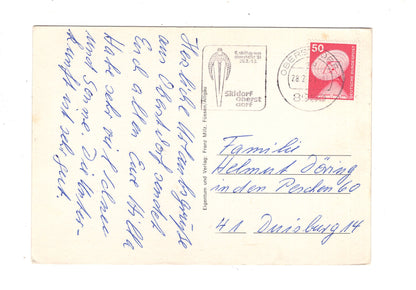 Herzliche Urlaubsgrüße
aus Oberstdorf sendet
Euch allen Eure Hilda
Habe sehr viel Schnee
und Sonne. Die Unter-
kunft ist sehr gut
Eigentum und Verlag: Franz Milz, Füssen/Allgäu
Skidorf
oberst
dorf
OBERSTDORF
50
DEUTSCHE BUNDESPOST
Familie
Helmut Döring
in den Peschen 60
41 Duisburg 14